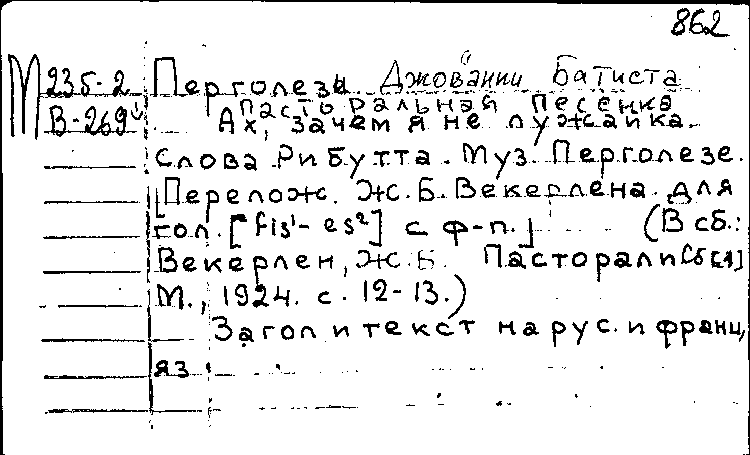 862
М 235-2 Перголези Джованни Батиста
В-269 Пасторальная песенка
Ах, зачем я не лужайка.
Слова Рибутта. Муз. Перголезе.
[Перелож. Ж.Б. Векерлена для
гол. [fis¹- es²] с ф-п.] (В сб.:
Векерлен, Ж.Б. Пасторали Сб[1]
М., 1924. с. 12-13.)
Загол и текст на рус. и франц,
яз